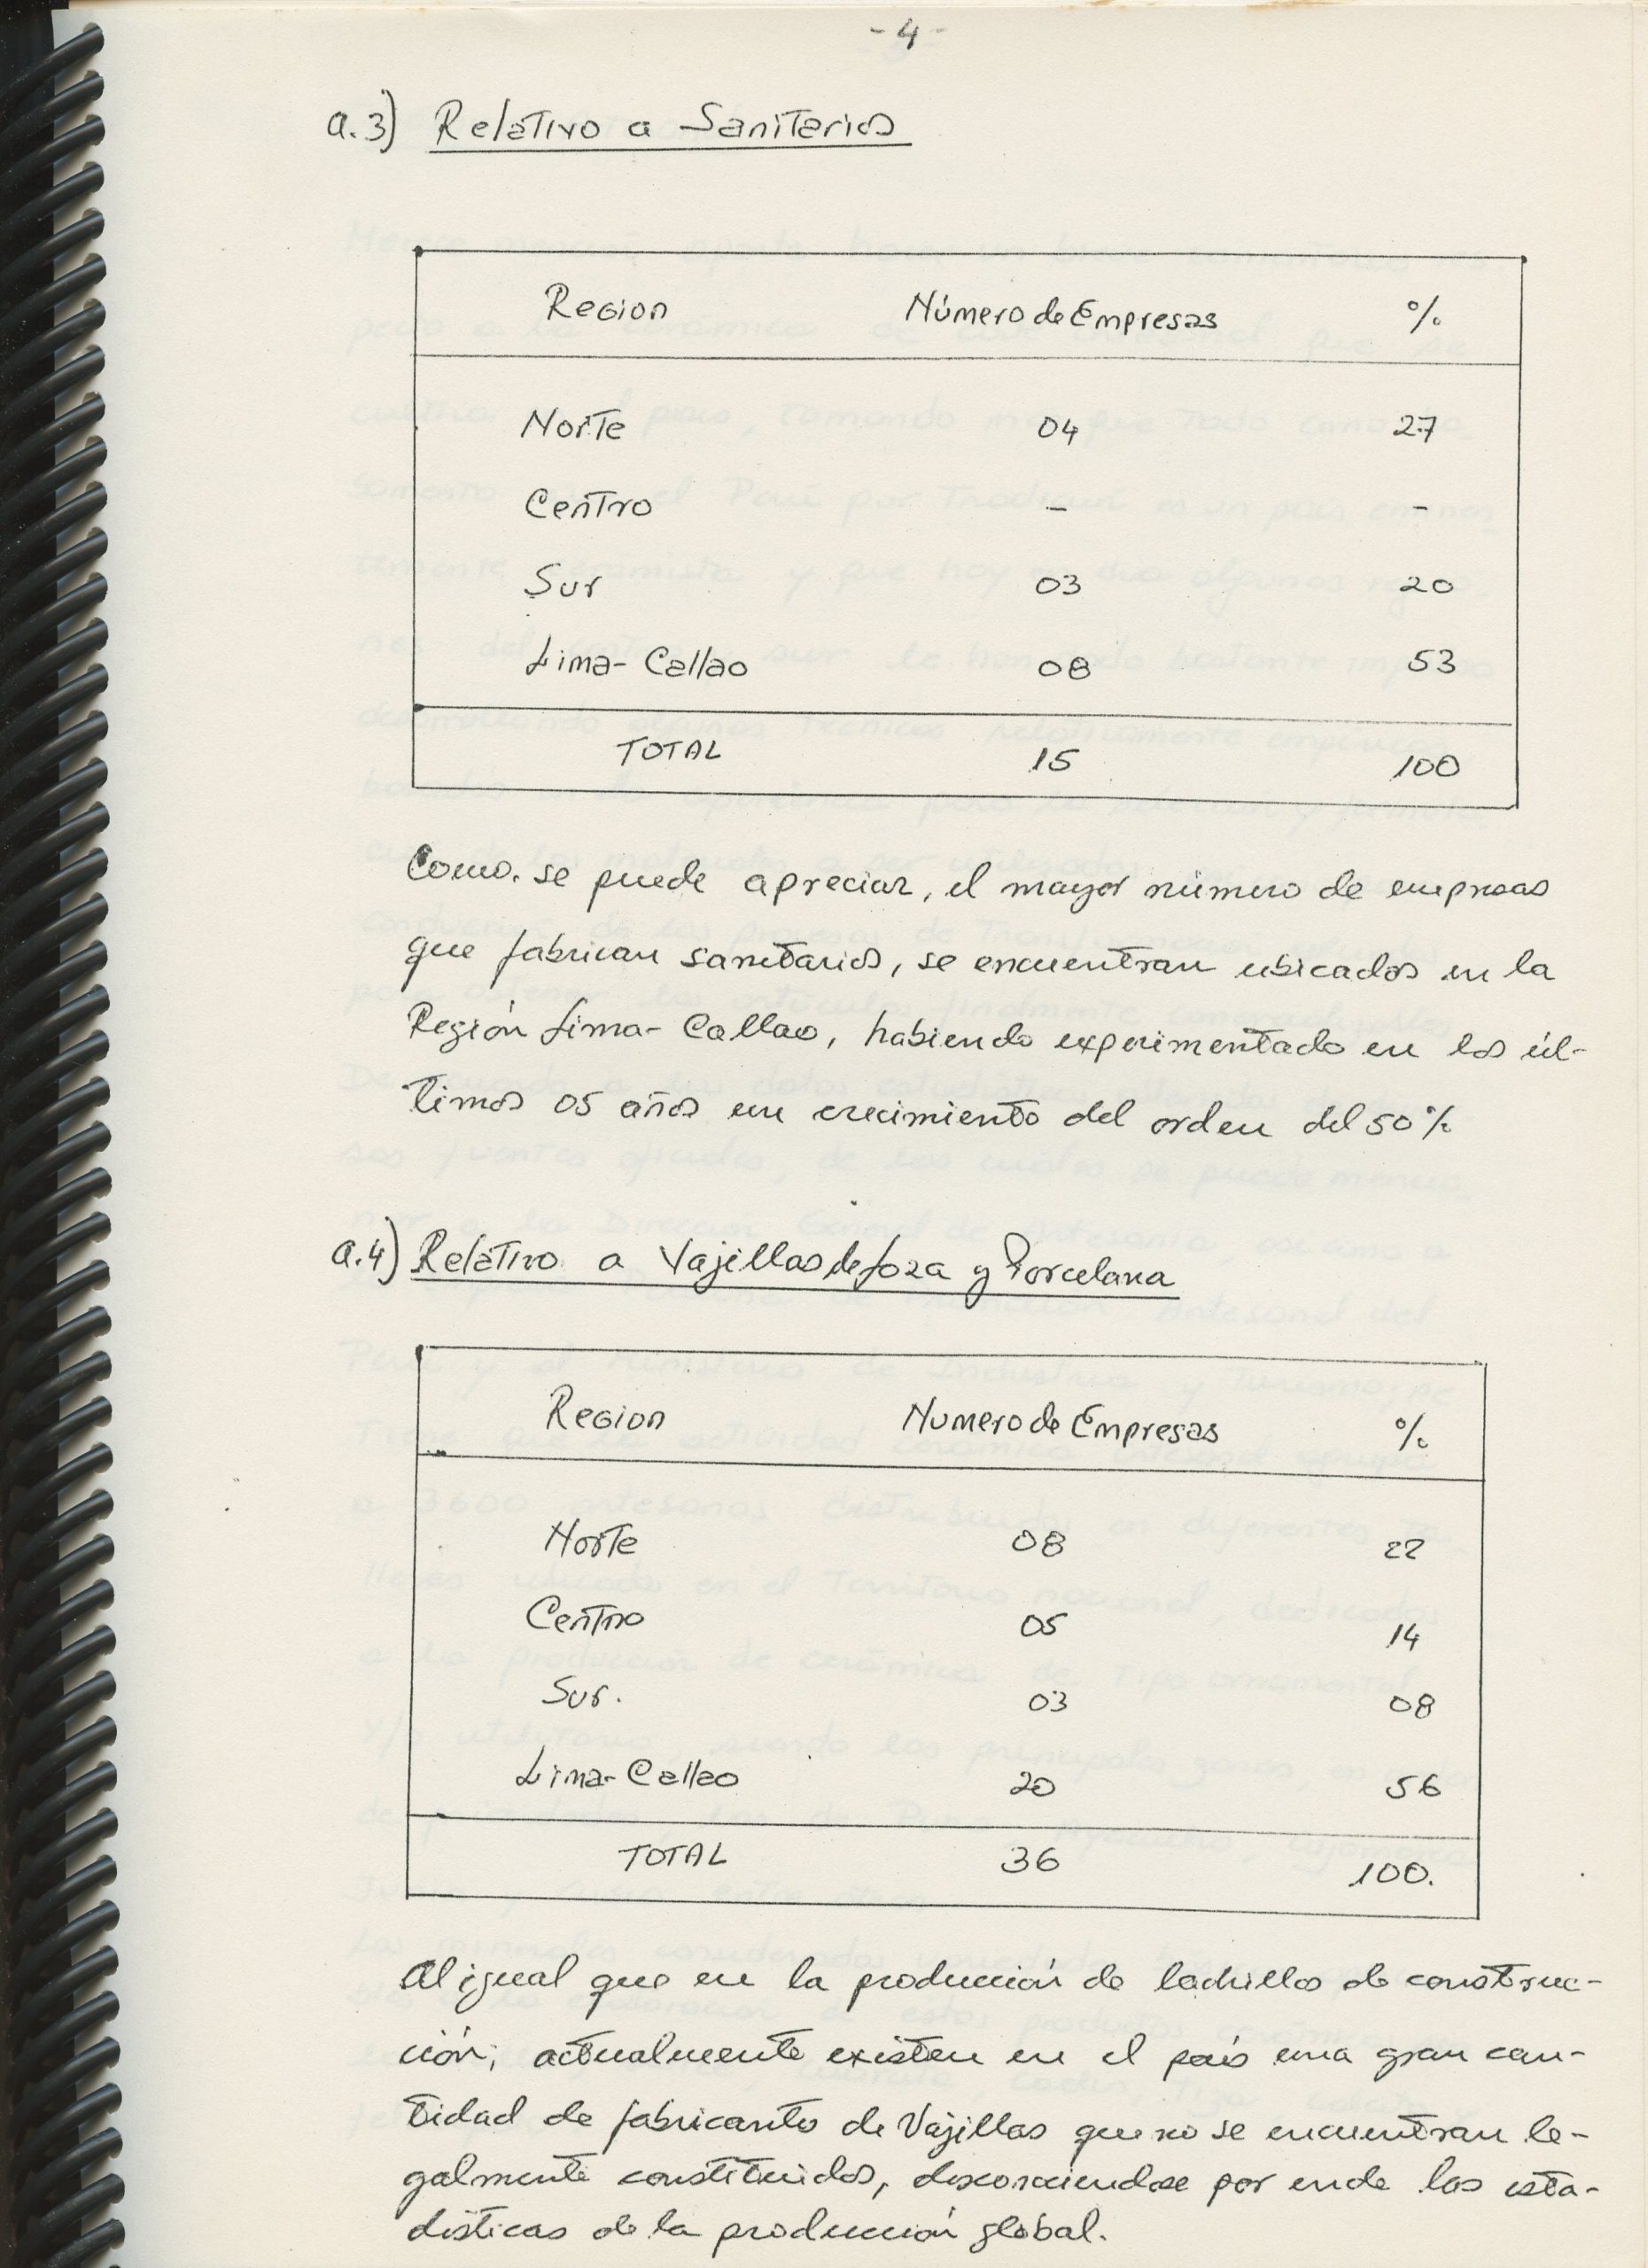 - 4 -
a.3) Relativo a Sanitarios
Region Número de Empresas %
Norte 04 27
Centro - -
Sur 03 20
Lima-Callao 08 53
TOTAL 15 100
Como se puede apreciar, el mayor número de empresas
que fabrican sanitarios, se encuentran ubicados en la
Región Lima-Callao, habiendo experimentado en los úl-
timos 05 años un crecimiento del orden del 50%
a.4) Relativo a Vajillas de Loza y Porcelana
Region Numero de Empresas %
Norte 08 22
Centro 05 14
Sur. 03 08
Lima-Callao 20 56
TOTAL 36 100.
Al igual que en la producción de ladrillos de construc-
ción, actualmente existen en el país una gran can-
tidad de fabricantes de Vajillas que no se encuentran le-
galmente constituidos, desconociendose por ende las esta-
dísticas de la producción global.